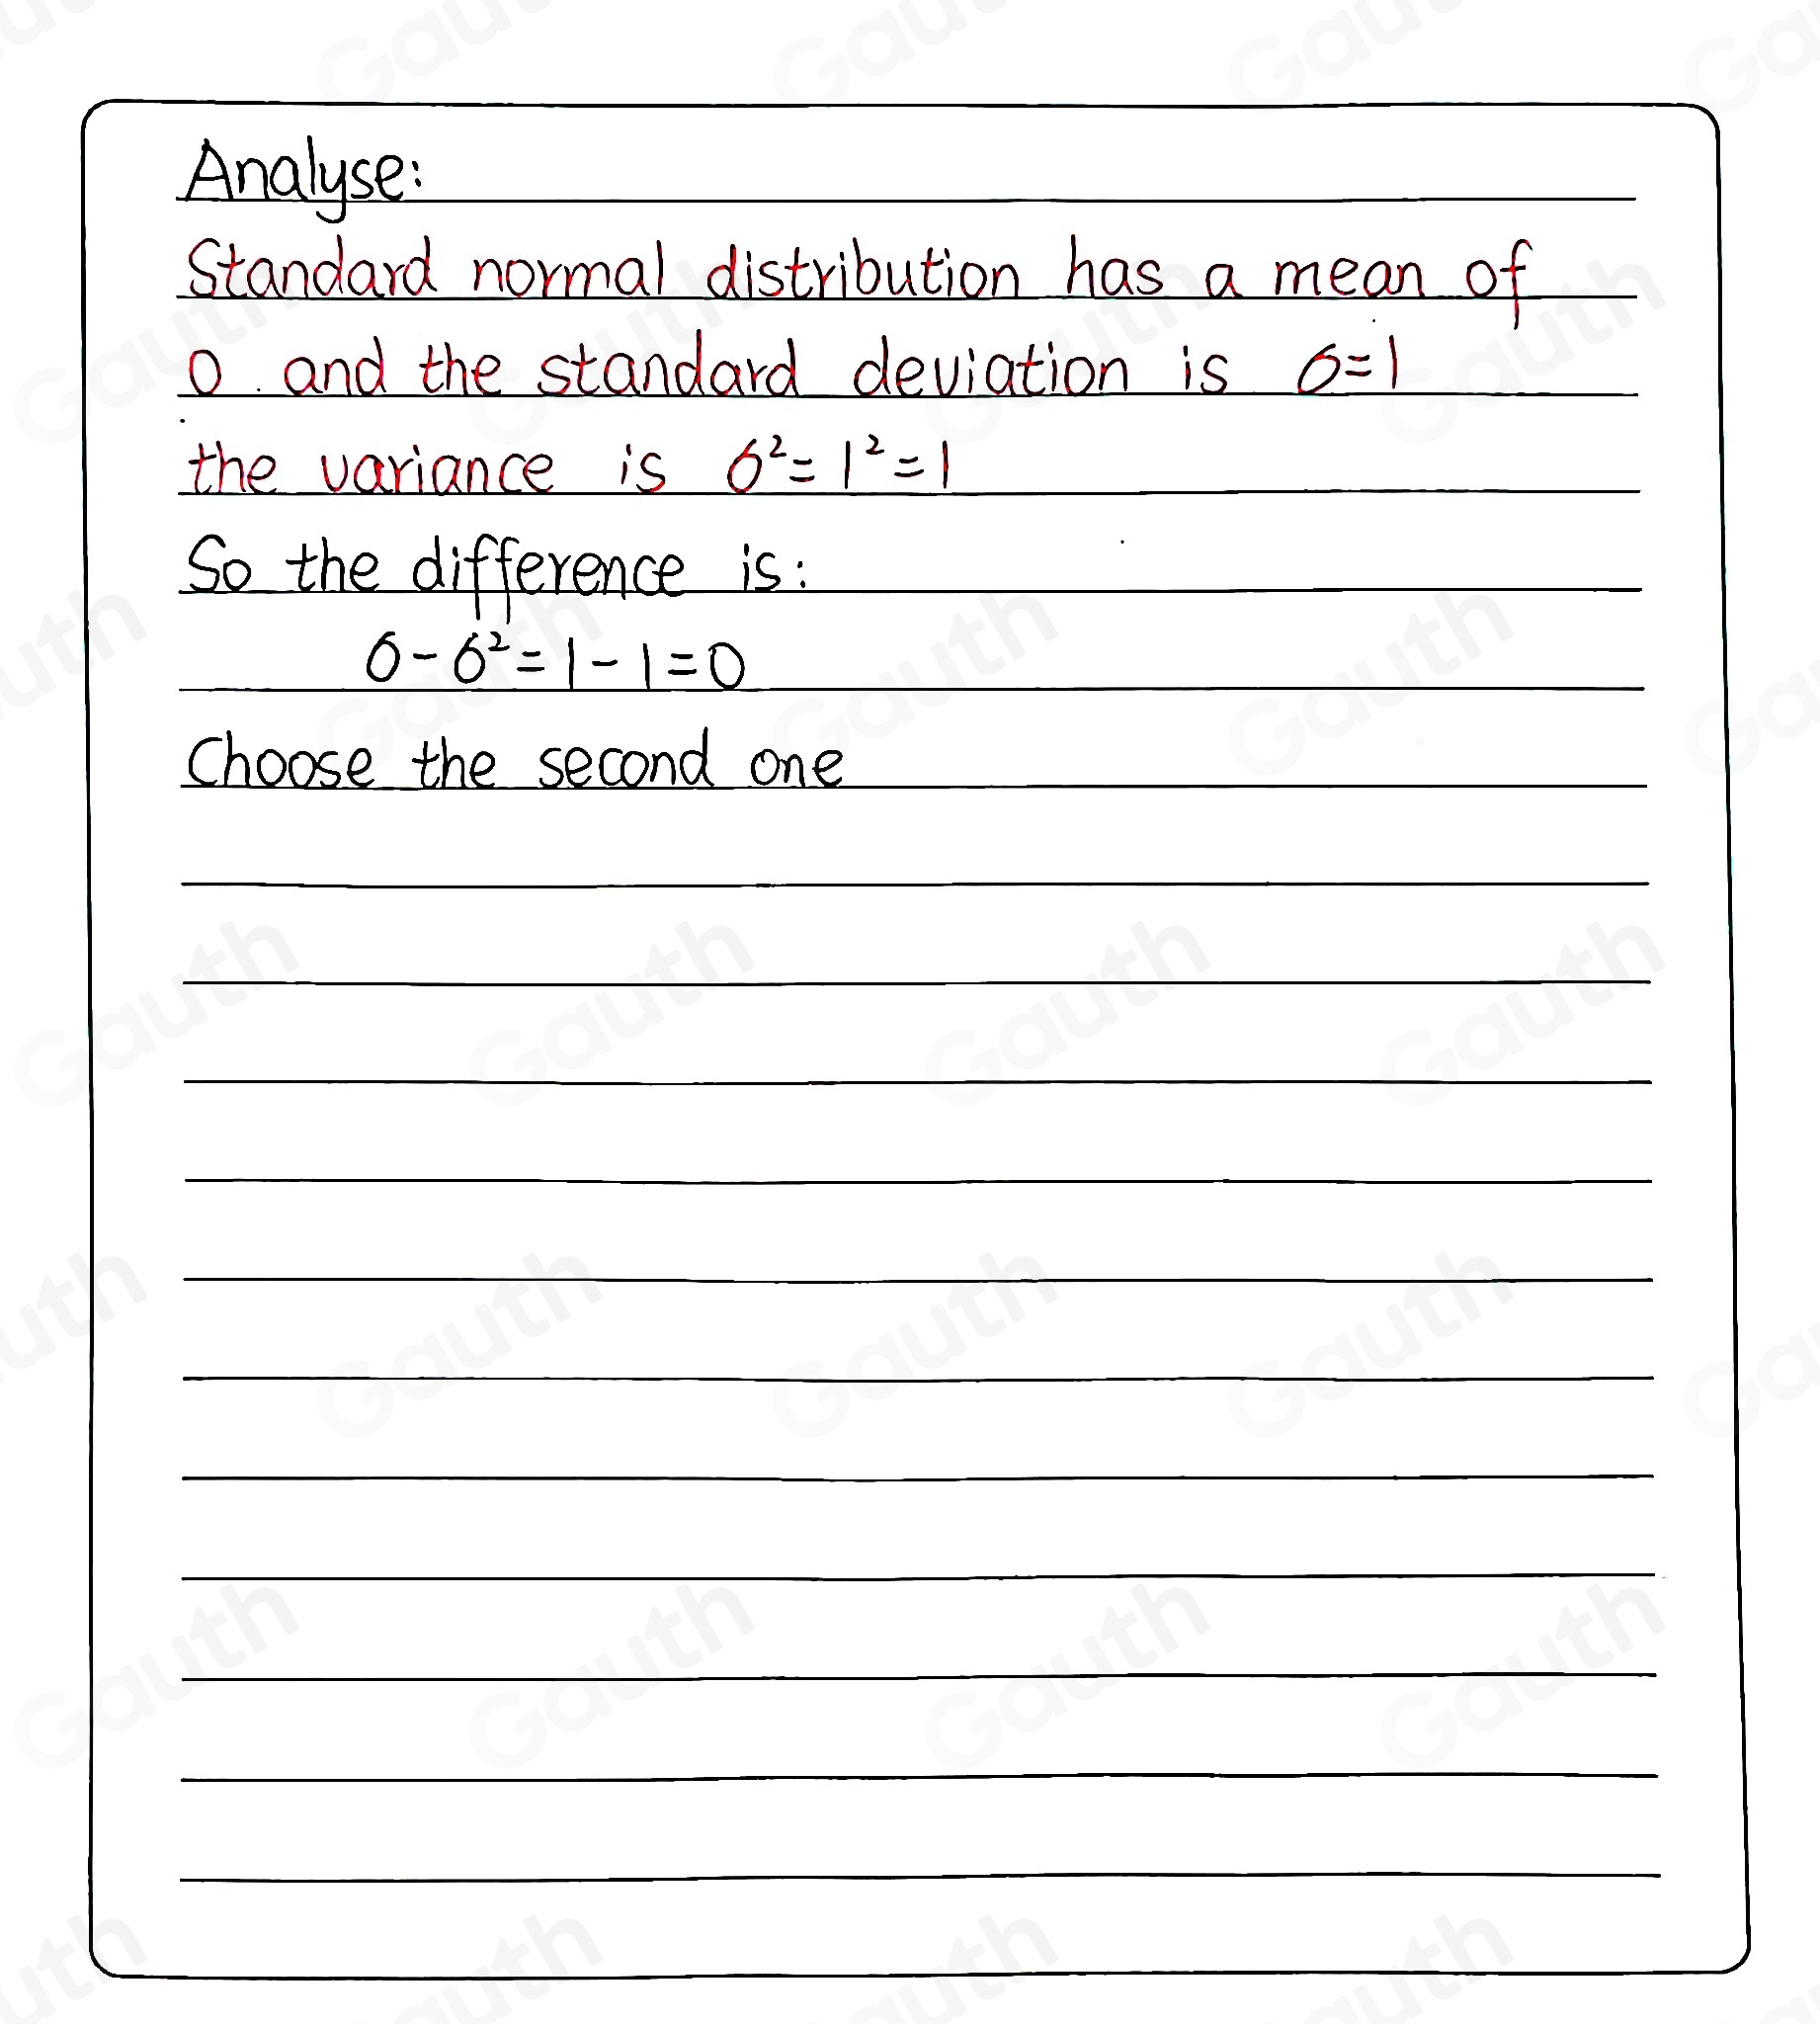 Analyse:
Standard normal distribution has a mean of
0 and the standard deviation is σ=1
the variance is σ²=1²=1
So the difference is:
σ-σ²=1-1=0
Choose the second one